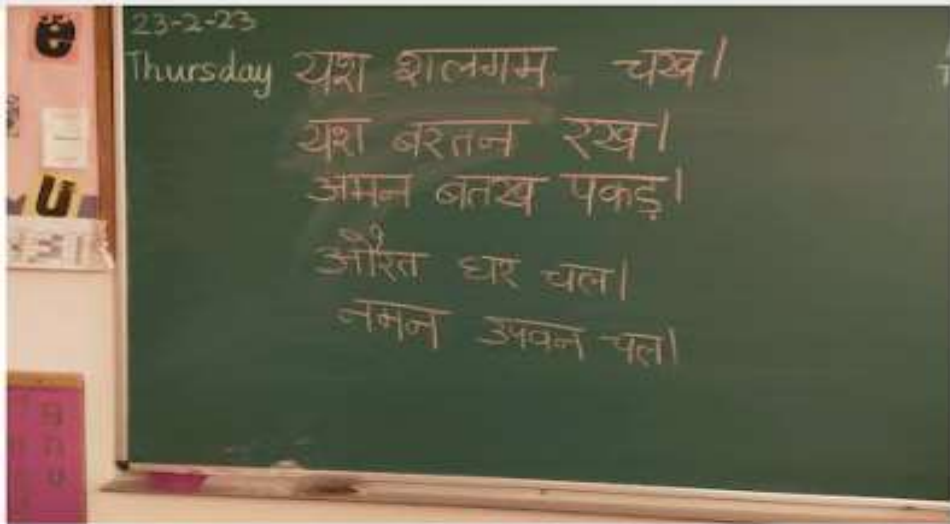 23-2-23
Thursday
यश शलगम चख।
यश बरतन रख।
अमन बतख पकड़।
औरत घर चल।
नमन उपवन चल।
e
u